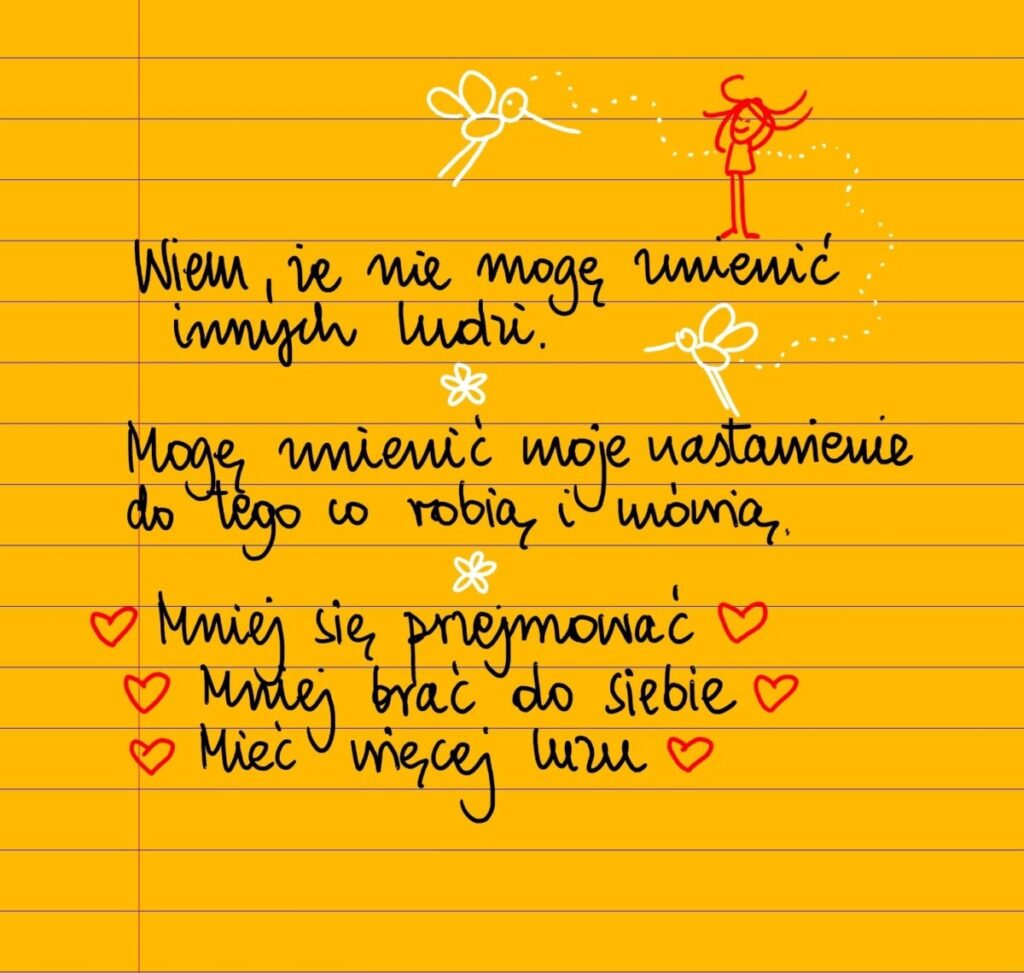 Wiem, że nie mogę zmienić
innych ludzi.
Mogę zmienić moje nastawienie
do tego co robią i mówią.
Mniej się przejmować
Mniej brać do siebie
Mieć więcej luzu